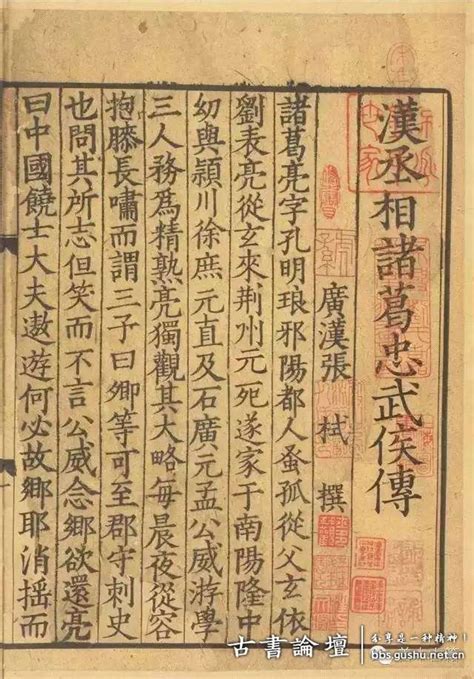 漢丞相諸葛忠武侯傳
廣漢張 栻 撰
諸葛亮字孔明琅邪陽都人蚤孤從父玄依
劉表亮從玄來荆州元死遂家于南陽隆中
幼與潁川徐庶元直及石廣元孟公威游學
三人務爲精熟亮獨觀其大略每晨夜從容
抱膝長嘯而謂三子曰卿等可至郡守刺史
也問其所志但笑而不言公威念鄉欲還亮
曰中國饒士大夫遨遊何必故鄉耶消揺而
古書論壇
分享是一种精神！
bbs.gushu.net.cn